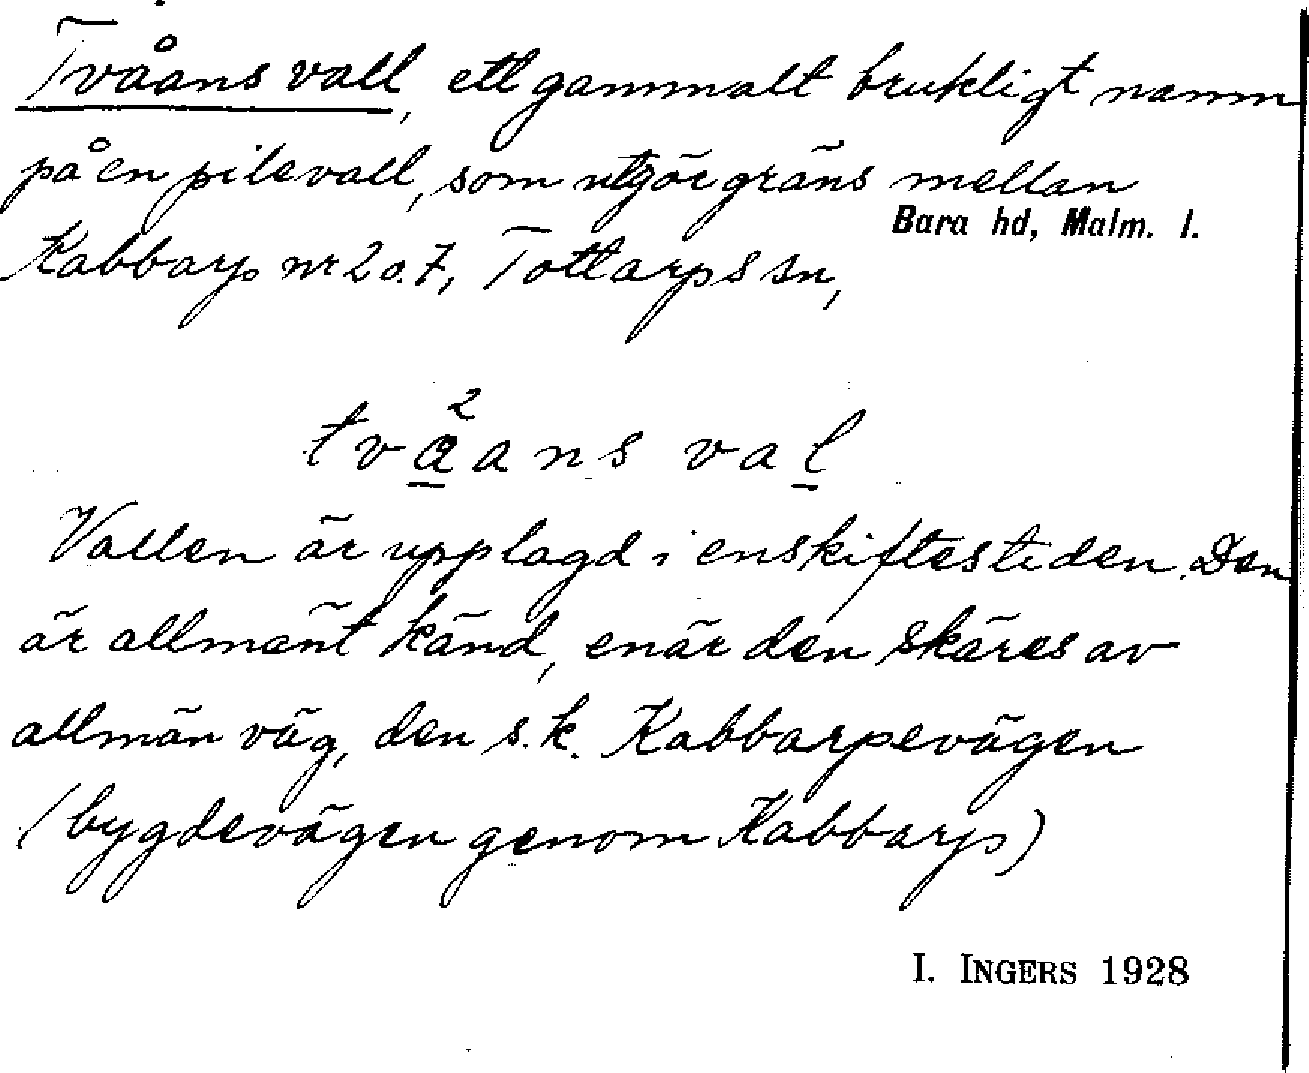 Tvåans vall, ett gammalt brukligt namn
på en pilevall, som utgör gräns mellan
Bara hd, Malm. l.
Kabbarp nr 2 o. 7, Tottarps sn,
2
tvåans val
Vallen är upplagd i enskiftestiden. Den
är allmänt känd, enär den skäres av
allmän väg, den s.k. Kabbarpevägen
(bygdevägen genom Kabbarp)
I. INGERS 1928